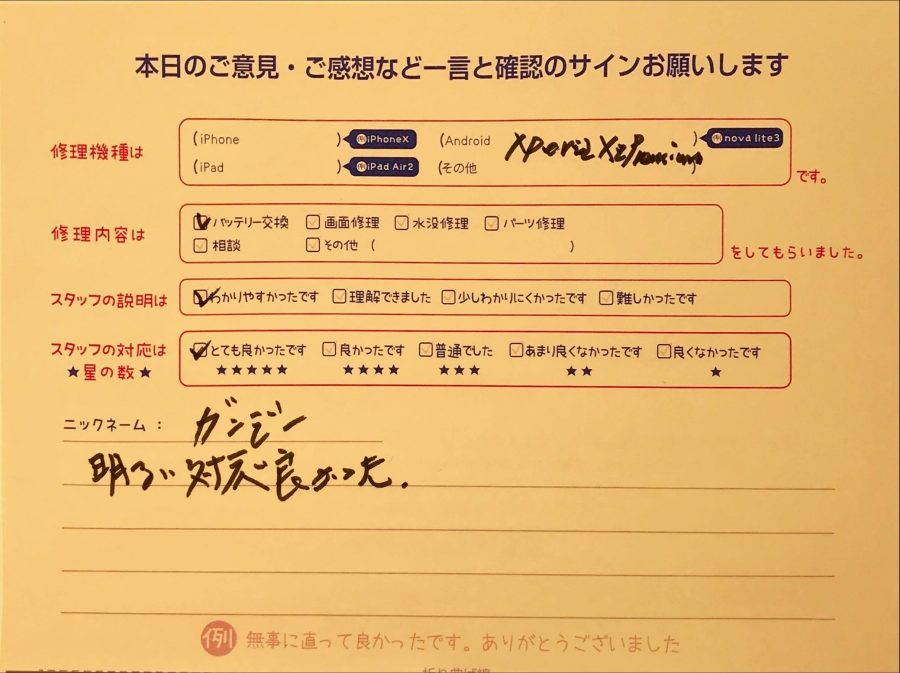 本日のご意見・ご感想など一言と確認のサインお願いします
修理機種は (iPhone ) 例iPhoneX (Android XperiaXZPremium ) 例nova lite3
(iPad ) 例iPad Air2 (その他 です。
修理内容は バッテリー交換 画面修理 水没修理 パーツ修理
相談 その他 ( ) をしてもらいました。
スタッフの説明は わかりやすかったです 理解できました 少しわかりにくかったです 難しかったです
スタッフの対応は とても良かったです 良かったです 普通でした あまり良くなかったです 良くなかったです
★星の数★ ★★★★★ ★★★★ ★★★ ★★ ★
ニックネーム: ガンビー
明るい対応良かった.
例 無事に直って良かったです。ありがとうございました